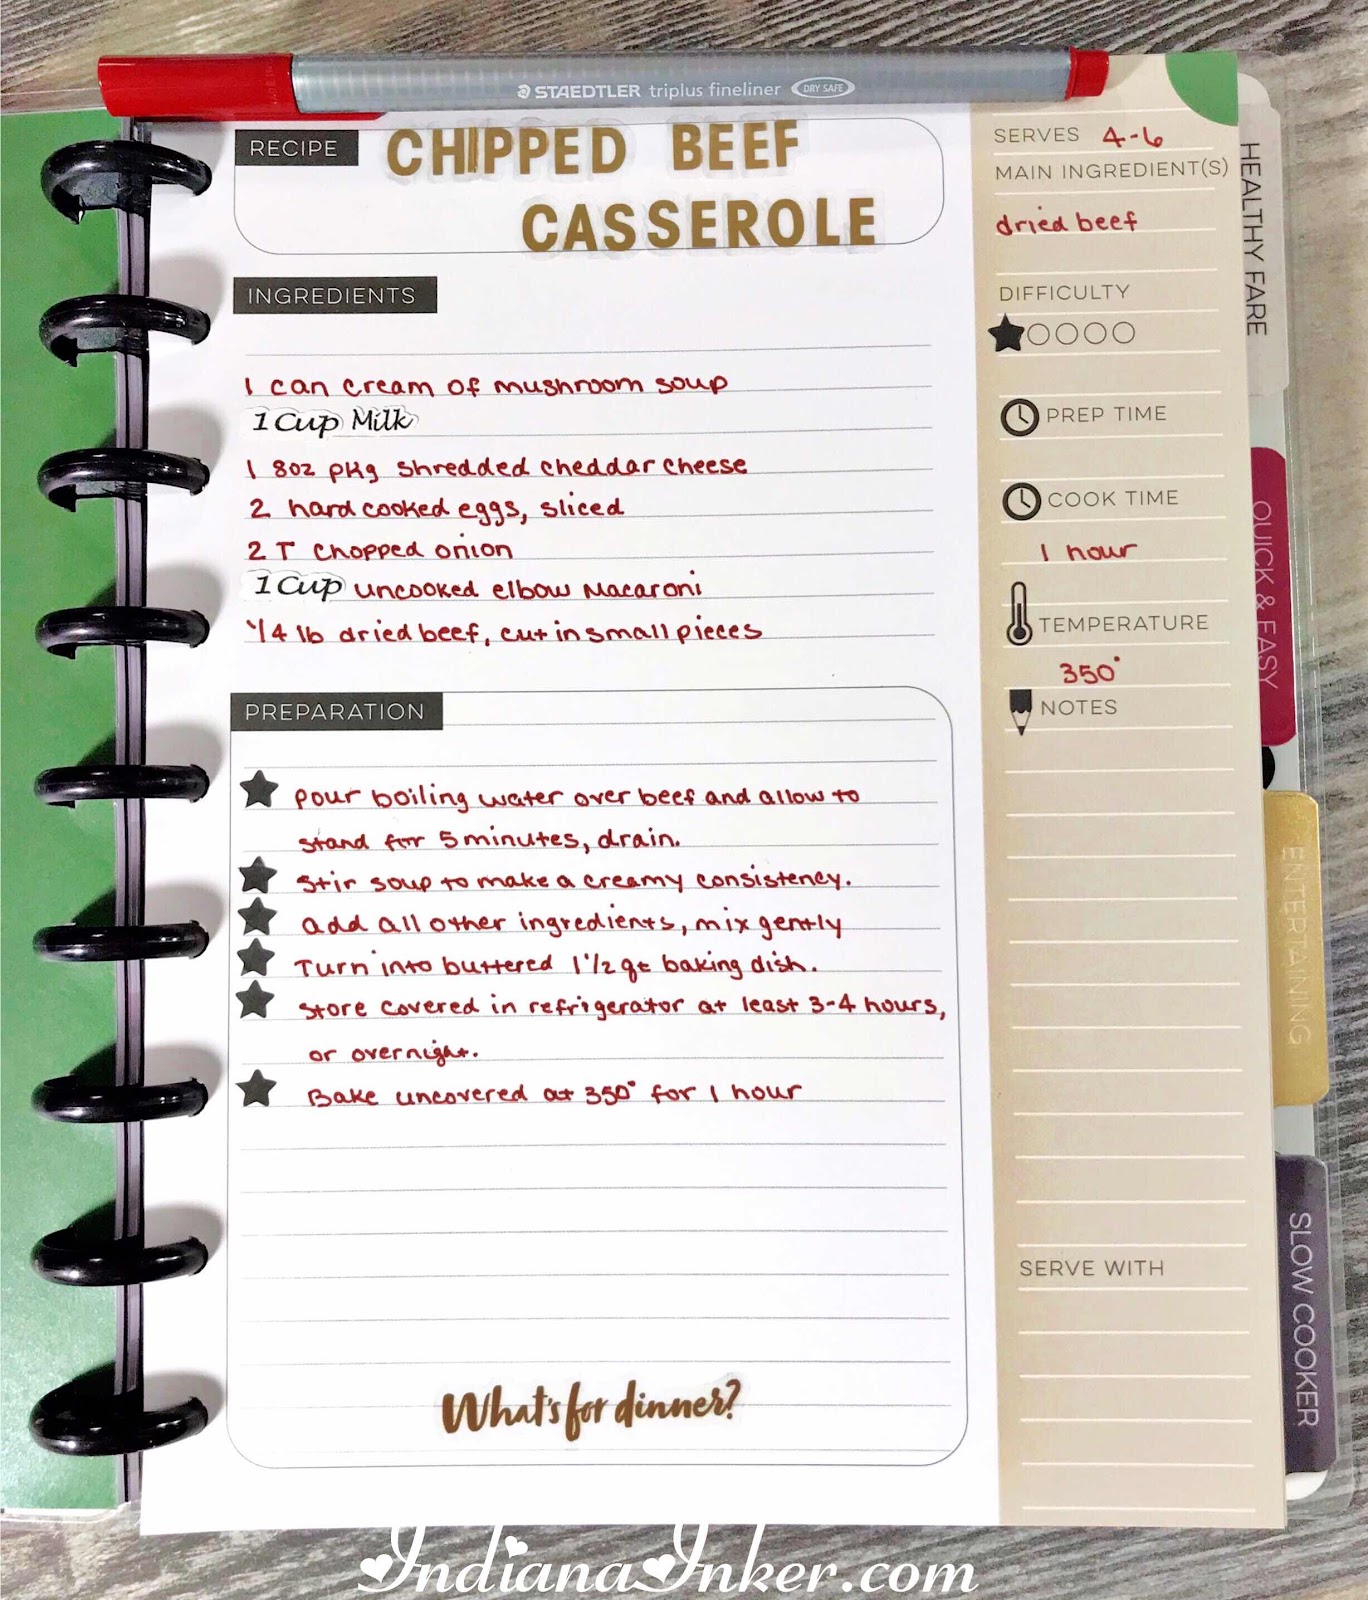 STAEDTLER triplus fineliner DRY SAFE
RECIPE
CHIPPED BEEF
CASSEROLE
INGREDIENTS
1 can cream of mushroom soup
1 Cup Milk
1 8oz pkg shredded cheddar cheese
2 hard cooked eggs, sliced
2 T chopped onion
1 Cup uncooked elbow Macaroni
1/4 lb dried beef, cut in small pieces
PREPARATION
Pour boiling water over beef and allow to
stand for 5 minutes, drain.
Stir soup to make a creamy consistency.
Add all other ingredients, mix gently
Turn into buttered 1 1/2 qt baking dish.
Store covered in refrigerator at least 3-4 hours,
or overnight.
Bake uncovered at 350° for 1 hour
What's for dinner?
SERVES 4-6
MAIN INGREDIENT(S)
dried beef
DIFFICULTY
PREP TIME
COOK TIME
1 hour
TEMPERATURE
350°
NOTES
SERVE WITH
HEALTHY FARE
QUICK & EASY
ENTERTAINING
SLOW COOKER
IndianaInker.com